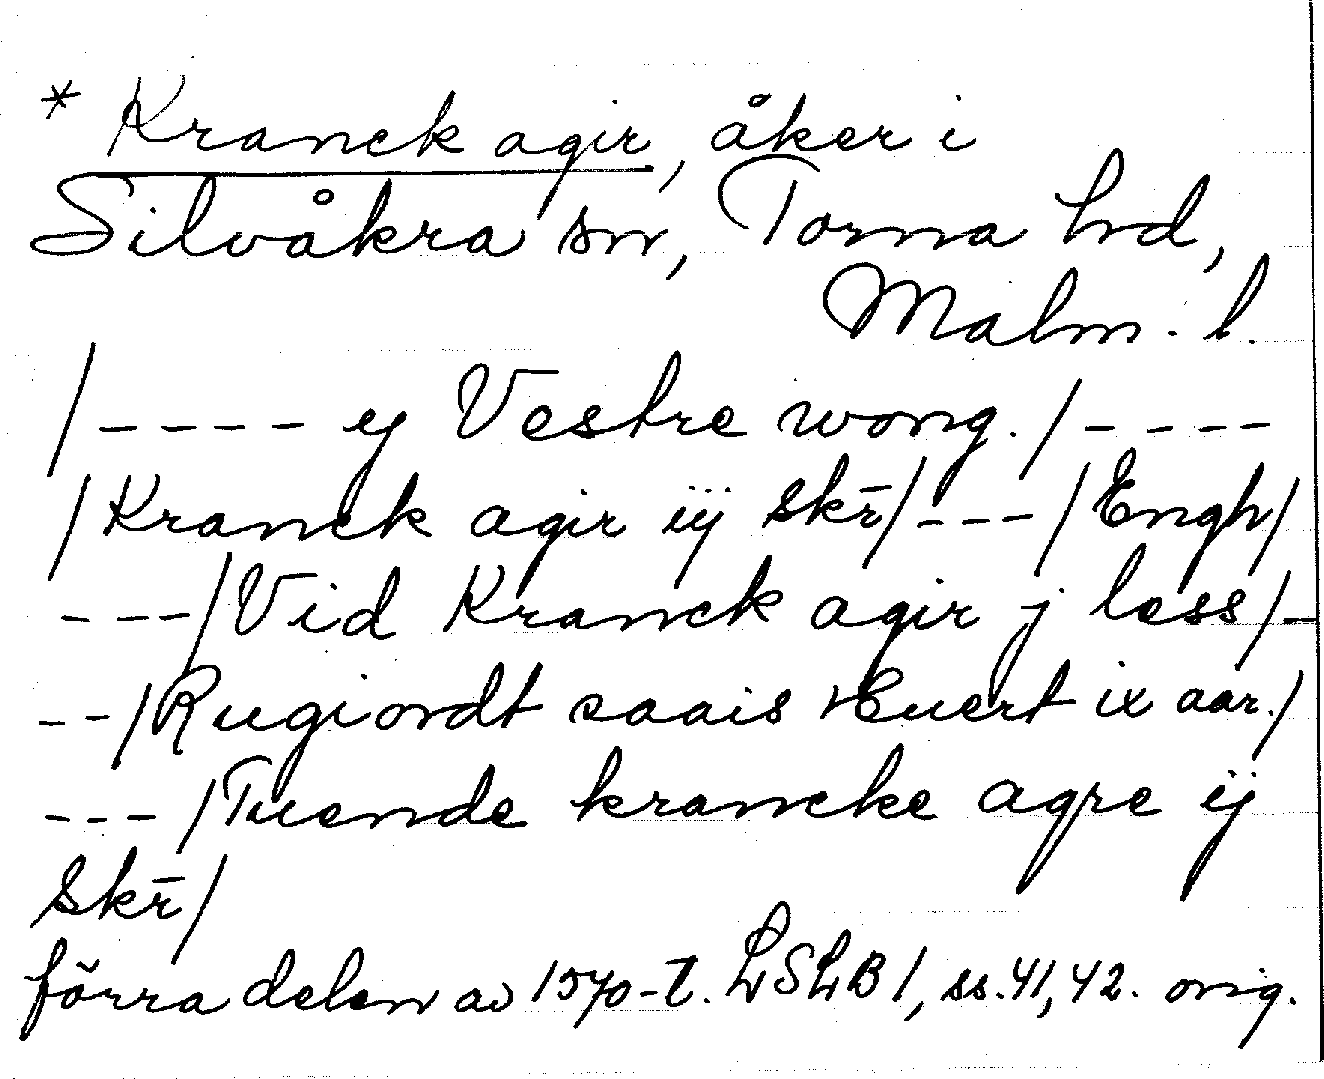 * Kranck agir, åker i
Silvåkra sn, Torna hd,
Malm. l.
/---- ej Vestre wong. / ----
/Kranck agir iij skr̄/ --- /Engh/
---/Vid Kranck agir j less/-
--/Rugiordt saais huert ix aar./
---/Tuende krancke agre ij
skr̄/
förra delen av 1570-t. LSLB 1, ss. 41, 42. orig.